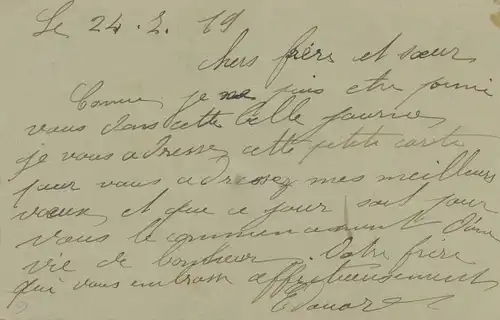 Le 24.2.19
Chers frère et sœur
Comme je ne puis etre parmi
vous dans cette belle journée
je vous adresse cette petite carte
pour vous adressez mes meilleurs
vœux et que ce jour soit pour
vous le commencement d'une
vie de bonheur. Votre frère
qui vous embrasse affectueusement
Edouard